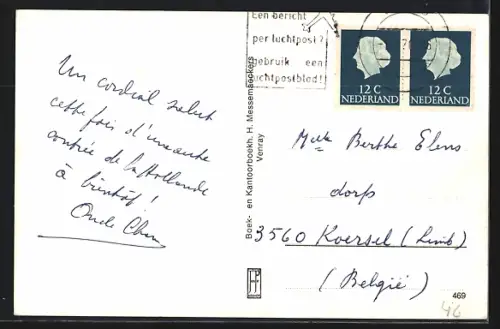 Een bericht
per luchtpost?
gebruik een
luchtpostblad!
12 C
NEDERLAND
12 C
NEDERLAND
Un cordial salut
cette fois d'une autre
contrée de la Hollande
à bientôt!
Oncle
Boek- en Kantoorboekh. H. Messemaeckers
Venray
Melle Berthe Elens
dorp
3560 Koersel (Limb)
(België)
469
46